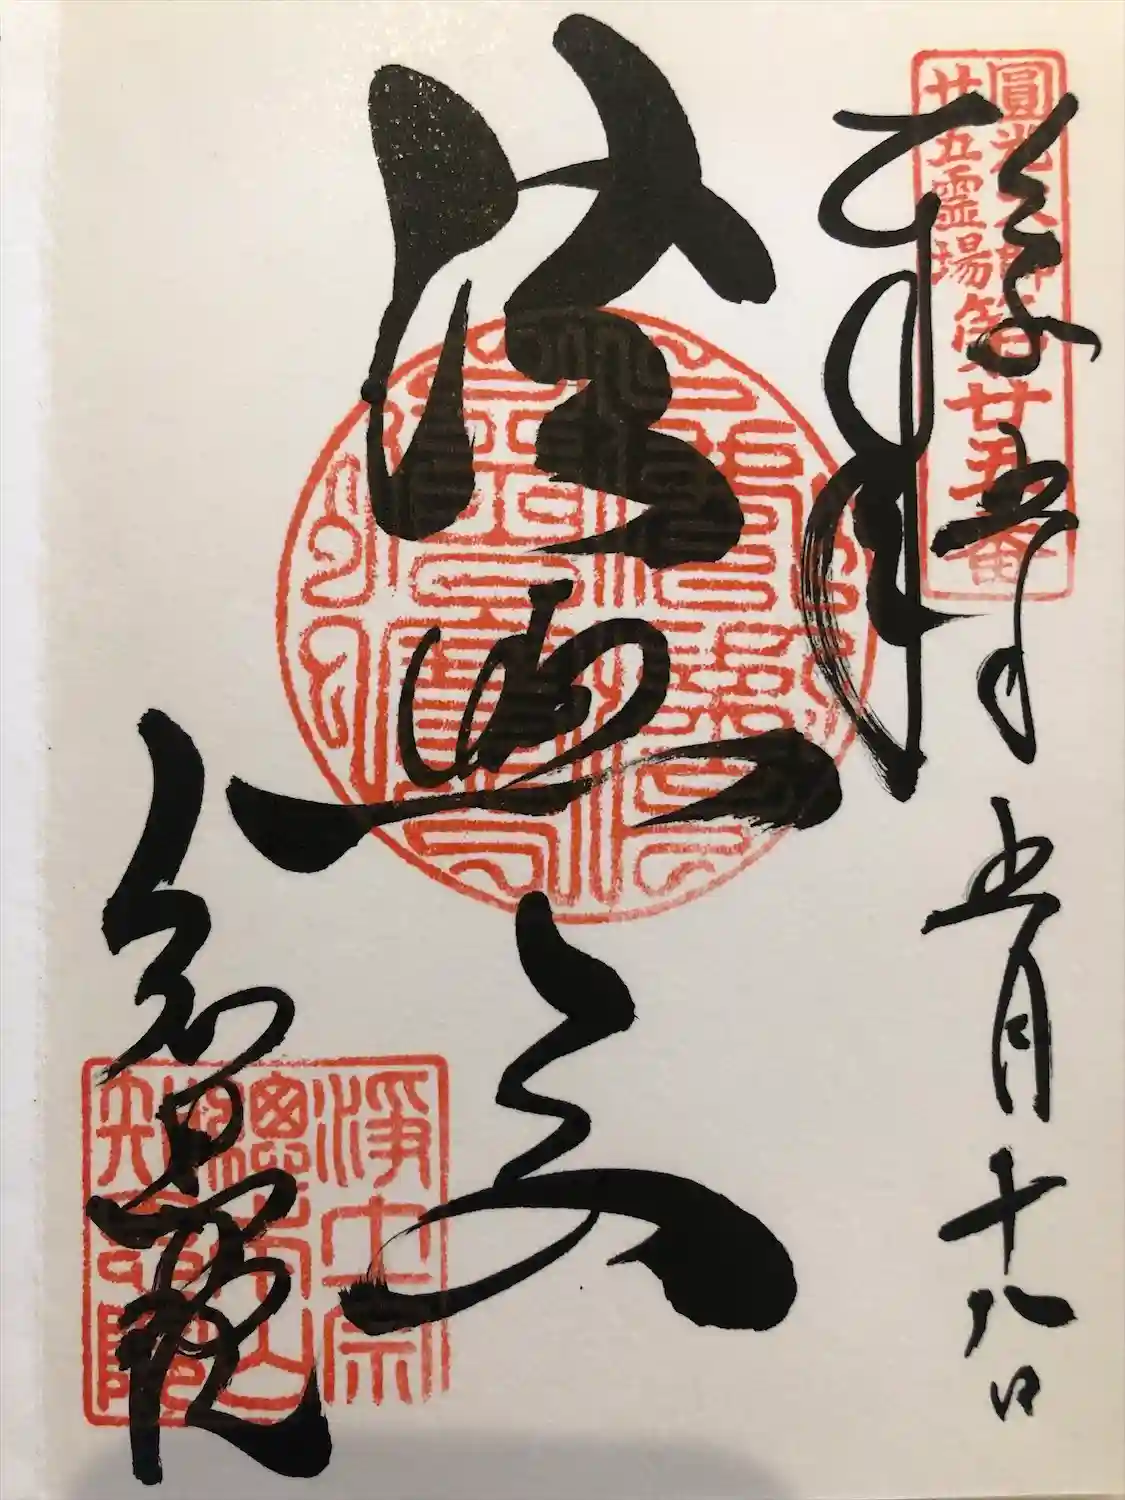 圓光大師
廿五霊場
第廿五番
五年五月十八日
拝
法然上人
知恩院
淨土宗
總本山
知恩院